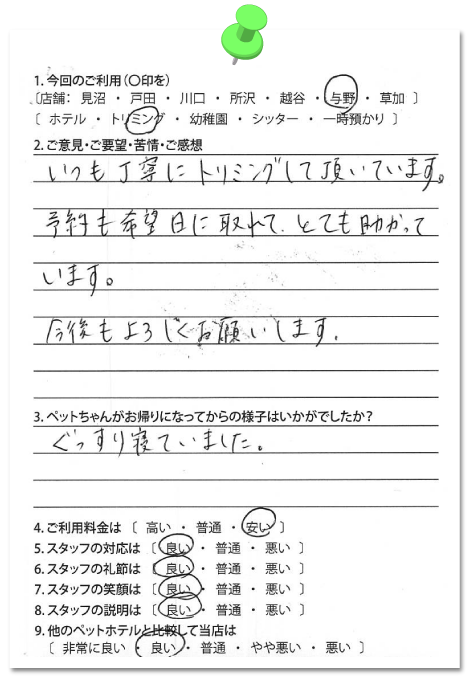 1. 今回のご利用(〇印を)
〔店舗： 見沼 ・ 戸田 ・ 川口 ・ 所沢 ・ 越谷 ・ 与野 ・ 草加 〕
〔 ホテル ・ トリミング ・ 幼稚園 ・ シッター ・ 一時預かり 〕
2. ご意見・ご要望・苦情・ご感想
いつも丁寧にトリミングして頂いています。
予約も希望日に取れて、とても助かって
います。
今後もよろしくお願いします。
3. ペットちゃんがお帰りになってからの様子はいかがでしたか？
ぐっすり寝ていました。
4. ご利用料金は 〔 高い ・ 普通 ・ 安い 〕
5. スタッフの対応は 〔 良い ・ 普通 ・ 悪い 〕
6. スタッフの礼節は 〔 良い ・ 普通 ・ 悪い 〕
7. スタッフの笑顔は 〔 良い ・ 普通 ・ 悪い 〕
8. スタッフの説明は 〔 良い ・ 普通 ・ 悪い 〕
9. 他のペットホテルと比較して当店は
〔 非常に良い ・ 良い ・ 普通 ・ やや悪い ・ 悪い 〕